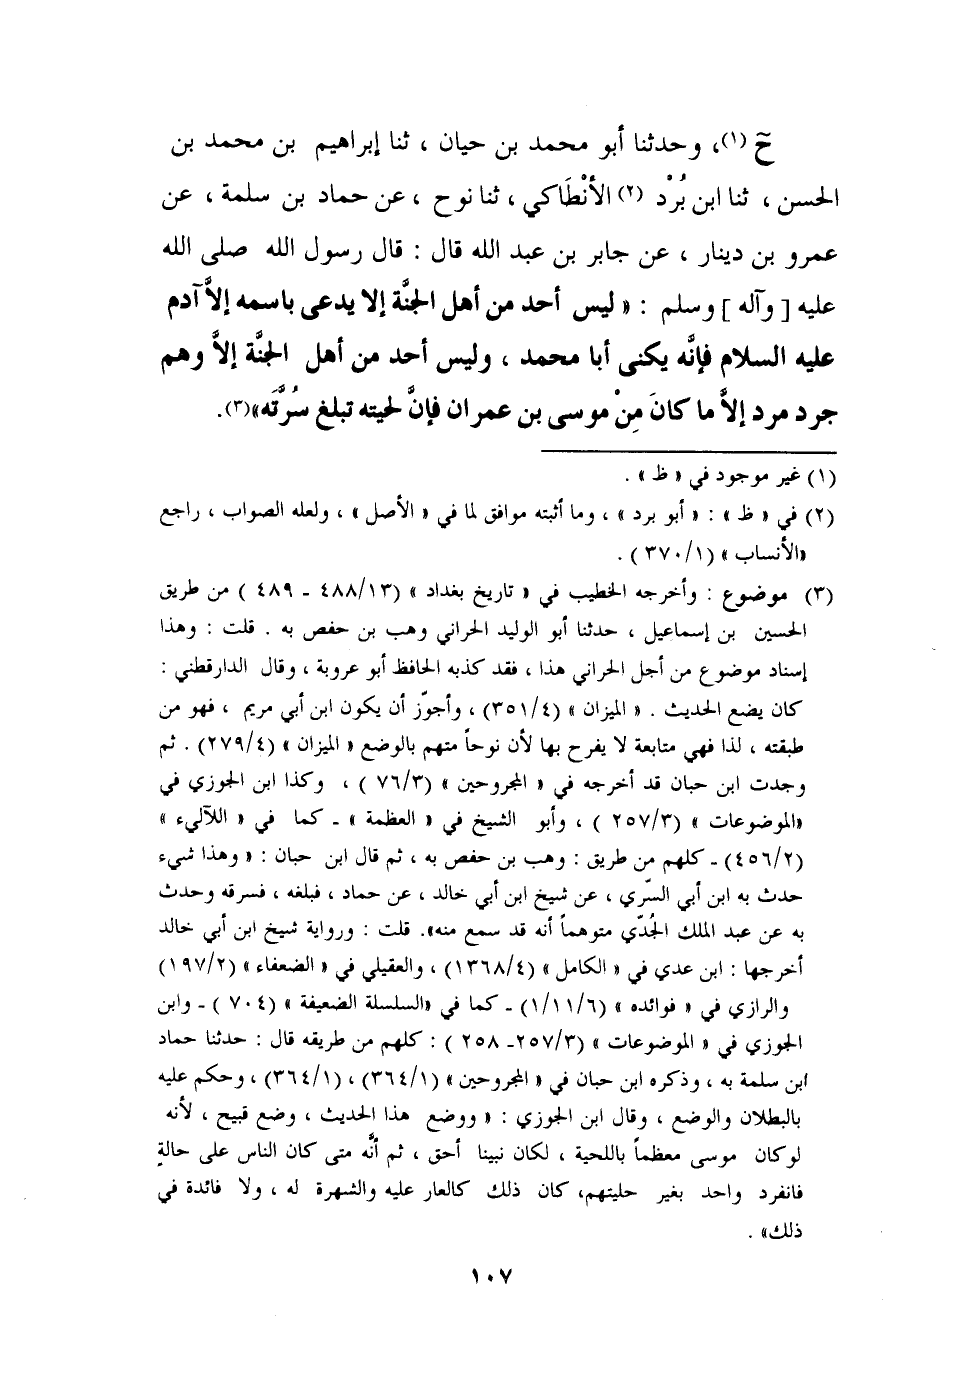 حَ (١)، وحدثنا أبو محمد بن حيان ، ثنا إبراهيم بن محمد بن
الحسن ، ثنا ابن بُرْد (٢) الأنْطَاكي ، ثنا نوح ، عن حماد بن سلمة ، عن
عمرو بن دينار ، عن جابر بن عبد الله قال : قال رسول الله صلى الله
عليه [ وآله ] وسلم : « ليس أحد من أهل الجنَّة إلا يدعى باسمه إلاَّ آدم
عليه السلام فإنَّه يكنى أبا محمد ، وليس أحد من أهل الجنَّة إلاَّ وهم
جرد مرد إلاَّ ما كانَ مِنْ موسى بن عمران فإنَّ لحيته تبلغ سُرَّتَه»(٣).
(١) غير موجود في « ظ » .
(٢) في « ظ » : « أبو برد » ، وما أثبته موافق لما في « الأصل » ، ولعله الصواب ، راجع
«الأنساب » (٣٧٠/١ ) .
(٣) موضوع : وأخرجه الخطيب في « تاريخ بغداد » (٤٨٨/١٣ ـ ٤٨٩ ) من طريق
الحسين بن إسماعيل ، حدثنا أبو الوليد الحراني وهب بن حفص به . قلت : وهذا
إسناد موضوع من أجل الحراني هذا ، فقد كذبه الحافظ أبو عروبة ، وقال الدارقطني :
كان يضع الحديث . « الميزان » (٣٥١/٤) ، وأجوّز أن يكون ابن أبي مريم ، فهو من
طبقته ، لذا فهي متابعة لا يفرح بها لأن نوحاً متهم بالوضع « الميزان » (٢٧٩/٤) . ثم
وجدت ابن حبان قد أخرجه في « المجروحين » (٧٦/٣ ) ، وكذا ابن الجوزي في
«الموضوعات » (٢٥٧/٣ ) ، وأبو الشيخ في « العظمة » ـ كما في « اللآليء »
(٤٥٦/٢) ـ كلهم من طريق : وهب بن حفص به ، ثم قال ابن حبان : « وهذا شيء
حدث به ابن أبي السّري ، عن شيخ ابن أبي خالد ، عن حماد ، فبلغه ، فسرقه وحدث
به عن عبد الملك الجُدّي متوهماً أنه قد سمع منه». قلت : ورواية شيخ ابن أبي خالد
أخرجها : ابن عدي في « الكامل » (١٣٦٨/٤) ، والعقيلي في « الضعفاء » (١٩٧/٢)
والرازي في « فوائده » (١/١١/٦) ـ كما في «السلسلة الضعيفة » (٧٠٤ ) ـ وابن
الجوزي في « الموضوعات » (٢٥٧/٣ـ ٢٥٨ ) : كلهم من طريقه قال : حدثنا حماد
ابن سلمة به ، وذكره ابن حبان في « المجروحين » (٣٦٤/١) ، (٣٦٤/١) ، وحكم عليه
بالبطلان والوضع ، وقال ابن الجوزي : « ووضع هذا الحديث ، وضع قبيح ، لأنه
لوكان موسى معظماً باللحية ، لكان نبينا أحق ، ثم أنَّه متى كان الناس على حالةٍ
فانفرد واحد بغير حليتهم، كان ذلك كالعار عليه والشهرة له ، ولا فائدة في
ذلك» .
١٠٧